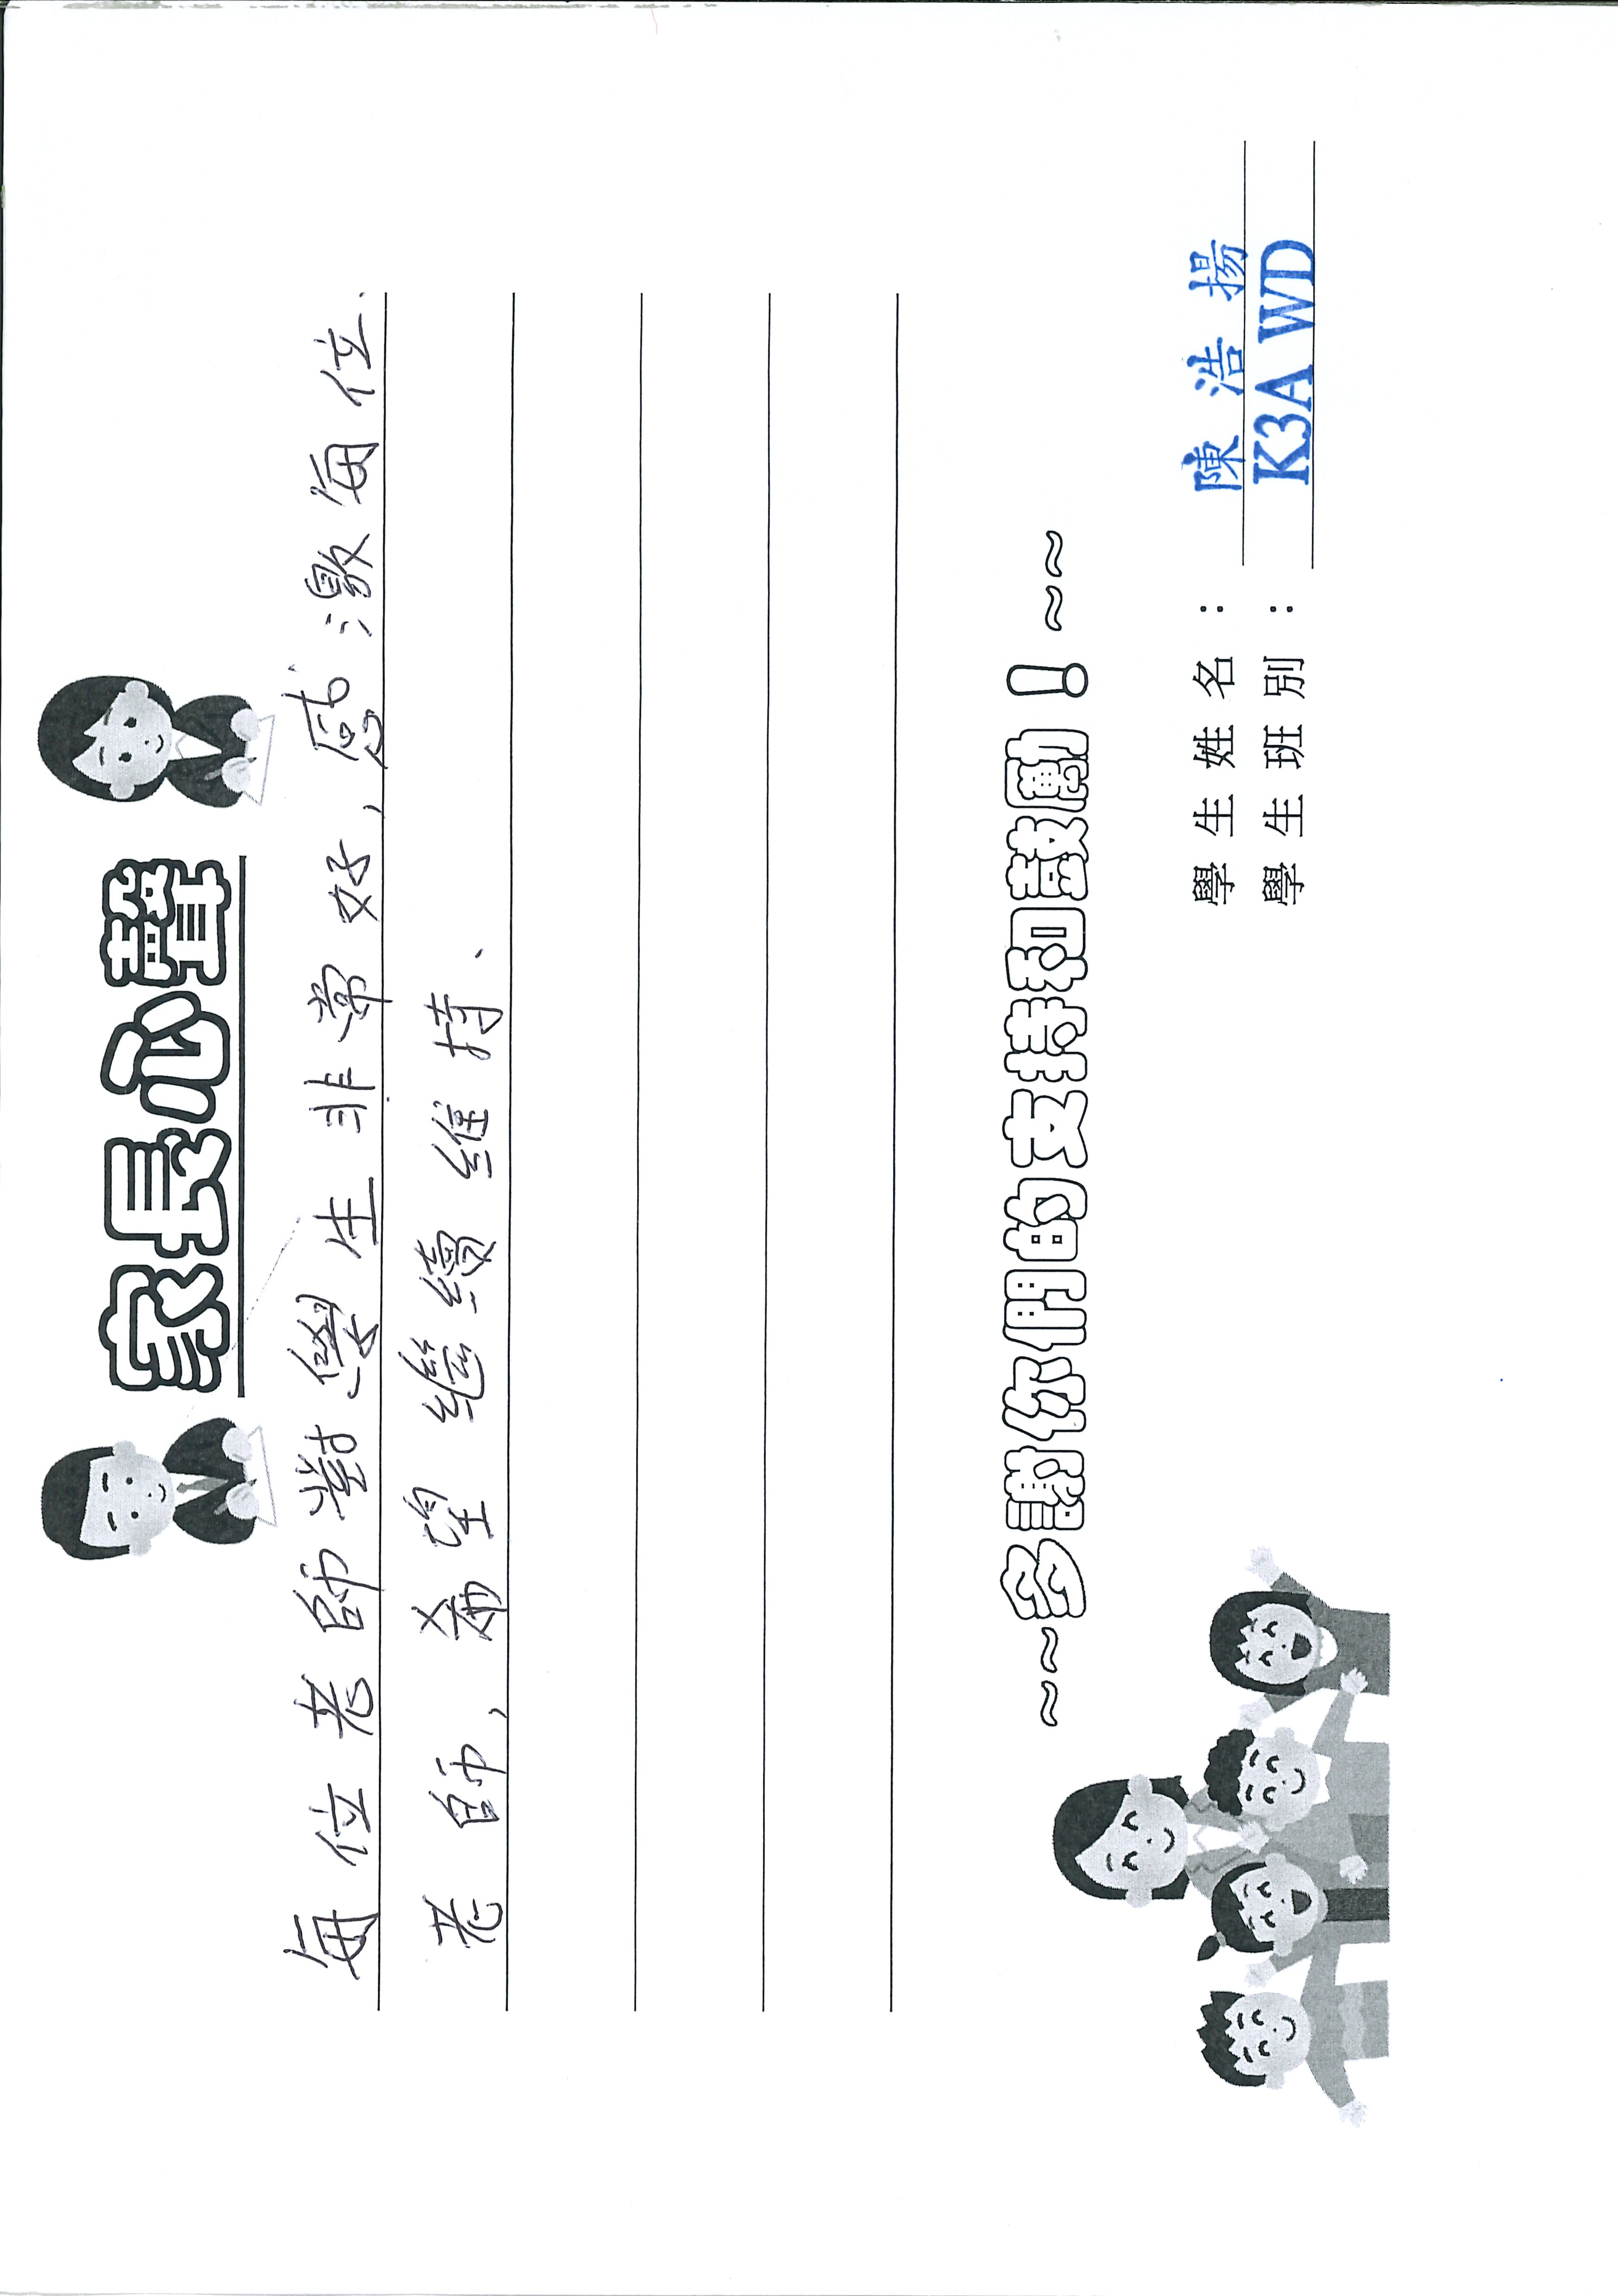 家長心聲
每位老師對學生非常好，感激每位
老師，希望繼續維持．
~~多謝你們的支持和鼓勵！~~
學生姓名：陳浩揚
學生班別：K3A WD